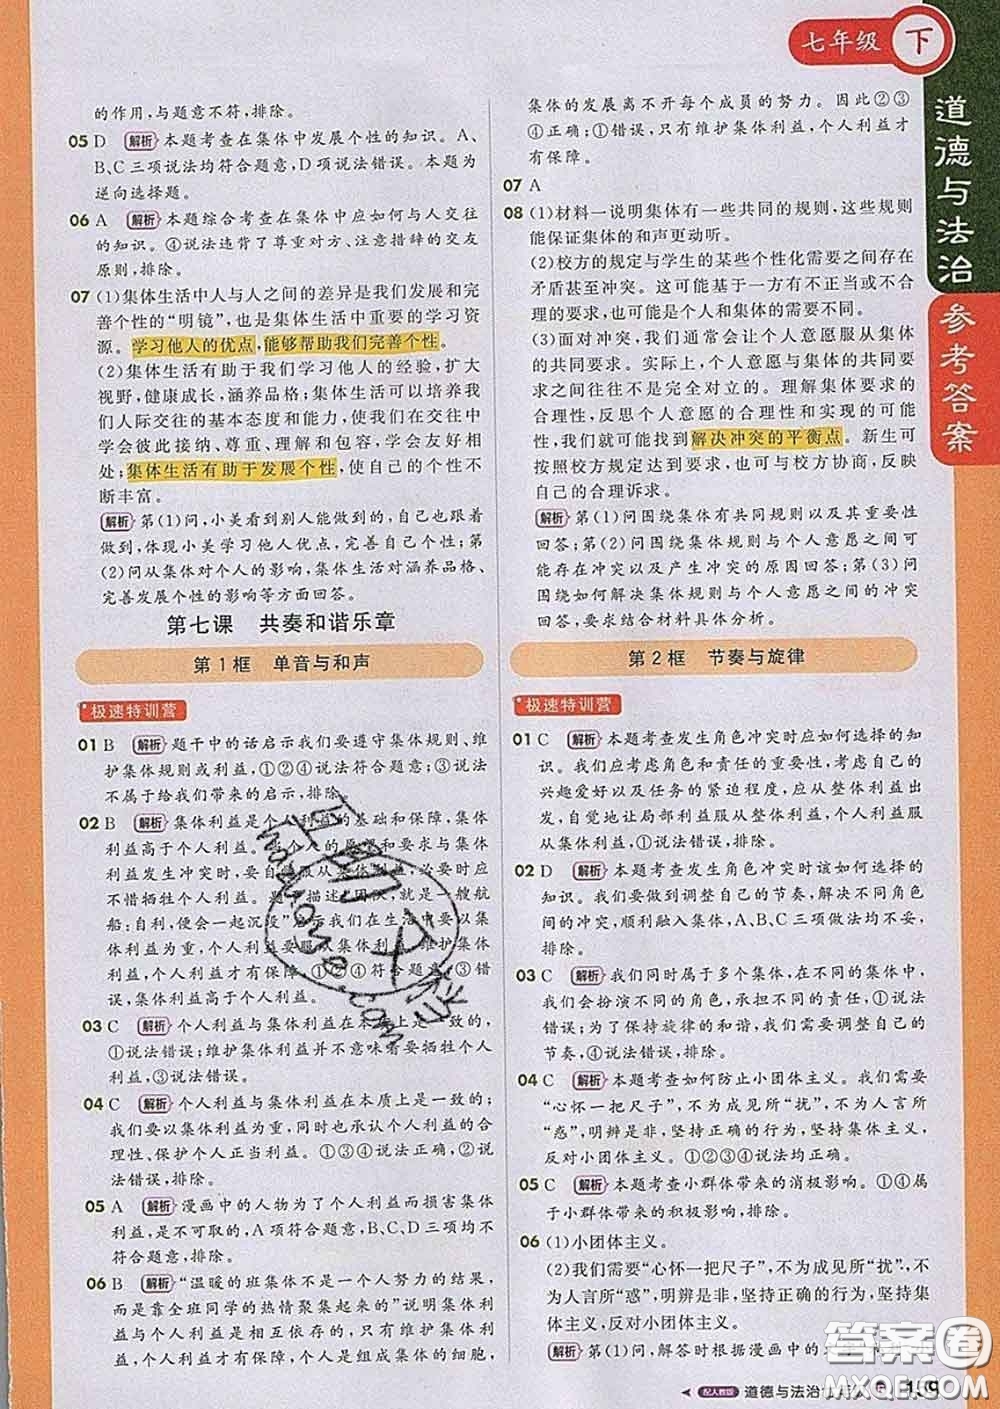 七年级 下
道德与法治
参考答案
的作用,与题意不符,排除。
05 D 解析 本题考查在集体中发展个性的知识。A、
B、C三项说法均符合题意,D项说法错误。本题为
逆向选择题。
06 A 解析 本题综合考查在集体中应如何与人交往
的知识。④说法违背了尊重对方、注意措辞的交友
原则,排除。
07 (1)集体生活中人与人之间的差异是我们发展和完
善个性的“明镜”,也是集体生活中重要的学习资
源。学习他人的优点,能够帮助我们完善个性。
(2)集体生活有助于我们学习他人的经验,扩大
视野,健康成长,涵养品格;集体生活可以培养我
们人际交往的基本态度和能力,使我们在交往中
学会彼此接纳、尊重、理解和包容,学会友好相
处;集体生活有助于发展个性,使自己的个性不
断丰富。
解析 第(1)问,小美看到别人能做到的,自己也跟着
做到,体现小美学习他人优点,完善自己的个性;第
(2)问从集体对个人的影响,集体生活对涵养品格、
完善发展个性的影响等方面组织回答。
第七课 共奏和谐乐章
第1框 单音与和声
极速特训营
01 B 解析 题干中的话启示我们要遵守集体规则、维
护集体规则或利益,①②④说法符合题意;③说法
不是故事给我们带来的启示,排除。
02 B 解析 集体利益是个人利益的基础和保障,集体
利益高于个人利益。当个人利益与集体利益
发生冲突时,要自觉服从集体利益,必要时应
不惜牺牲个人利益。题干描述“团队就是一艘航
船,自利,便会一起沉没”启示我们在生活中要以集
体利益为重,个人利益服从集体利益,维护集体利
益,个人利益才有保障,①②④符合题意;③错误,
集体利益高于个人利益。
03 C 解析 个人利益与集体利益在本质上是一致的,
①说法错误;维护集体利益并不意味着要牺牲个人
利益,③说法错误。
04 C 解析 个人利益与集体利益在本质上是一致的;
我们要以集体利益为重,同时也要承认个人的合理
性、保护个人正当利益。①③④说法正确,②说法
错误,排除。
05 A 解析 漫画中的人物为了个人利益而损害集体
利益,是不可取的,A项符合题意,B、C、D三项均不
符合题意,排除。
06 B 解析 “温暖的班集体不是一个人努力的结果,
而是靠全班同学的热情聚集起来的”说明集体利益
与个人利益是相互依存的,只有维护集体利益,
个人利益才有保障,个人是组成集体的细胞,
集体的发展离不开每个成员的努力。因此②③
④正确;①错误,只有维护集体利益,个人利益才
有保障。
07 A
08 (1)材料一说明集体有一些共同的规则,这些规则
能保证集体的和声更动听。
(2)校方的规定与学生的某些个性化需要之间存在
矛盾甚至冲突。这可能基于一方有不正当或不合
理的要求,也可能是个人和集体有不同的需要。
(3)面对冲突,我们常常会让个人意愿服从集体
的共同要求。实际上,个人意愿与集体的共同要
求之间往往不是完全对立的。理解集体要求的
合理性,反思个人意愿的合理性和实现的可能
性,我们就可能找到解决冲突的平衡点。新生可
按照校方规定达到要求,也可与校方协商,反映
自己的合理诉求。
解析 第(1)问围绕集体有共同规则以及其重要性
回答;第(2)问围绕集体规则与个人意愿之间可
能存在冲突以及产生冲突的原因回答;第(3)问
围绕如何解决个人意愿与集体规则之间的冲突
回答。回答时要结合材料具体分析。
第2框 节奏与旋律
极速特训营
01 C 解析 本题考查发生角色冲突时应如何选择的知
识。我们应考虑角色和责任的重要性、自己的
兴趣爱好以及任务的紧迫程度,应从整体利益出
发,自觉地让局部利益服从整体利益、个人利益服
从集体利益。
02 D 解析 本题考查发生角色冲突时该如何选择的
知识。我们要做到调整自己的节奏,解决不同角色
间的冲突,顺利融入集体,A、B、C三项做法均不妥,
排除。
03 C 解析 我们同时属于多个集体,在不同的集体中,
我们会扮演不同的角色,承担不同的责任,①说法
错误;为了保持旋律的和谐,我们需要调整自己的
节奏,④说法错误,排除。
04 C 解析 本题考查如何防止小团体主义。我们需要
“心怀一把尺子”,不为成见所“扰”,不为人言所
“惑”,明辨是非,坚持正确的行为,坚持集体主义,
反对小团体主义。①②③说法正确,④说法错误,
排除。
05 C 解析 本题考查小群体带来的消极影响。①④属
于小群体带来的积极影响,排除。
06 (1)小团体主义。
(2)我们需要“心怀一把尺子”,不为成见所“扰”,不
为人言所“惑”,明辨是非,坚持正确的行为,坚持集
体主义,反对小团体主义。
解析 第(1)问,解答时根据漫画
配人教版 道德与法治 159
答案圈
MXQE.COM